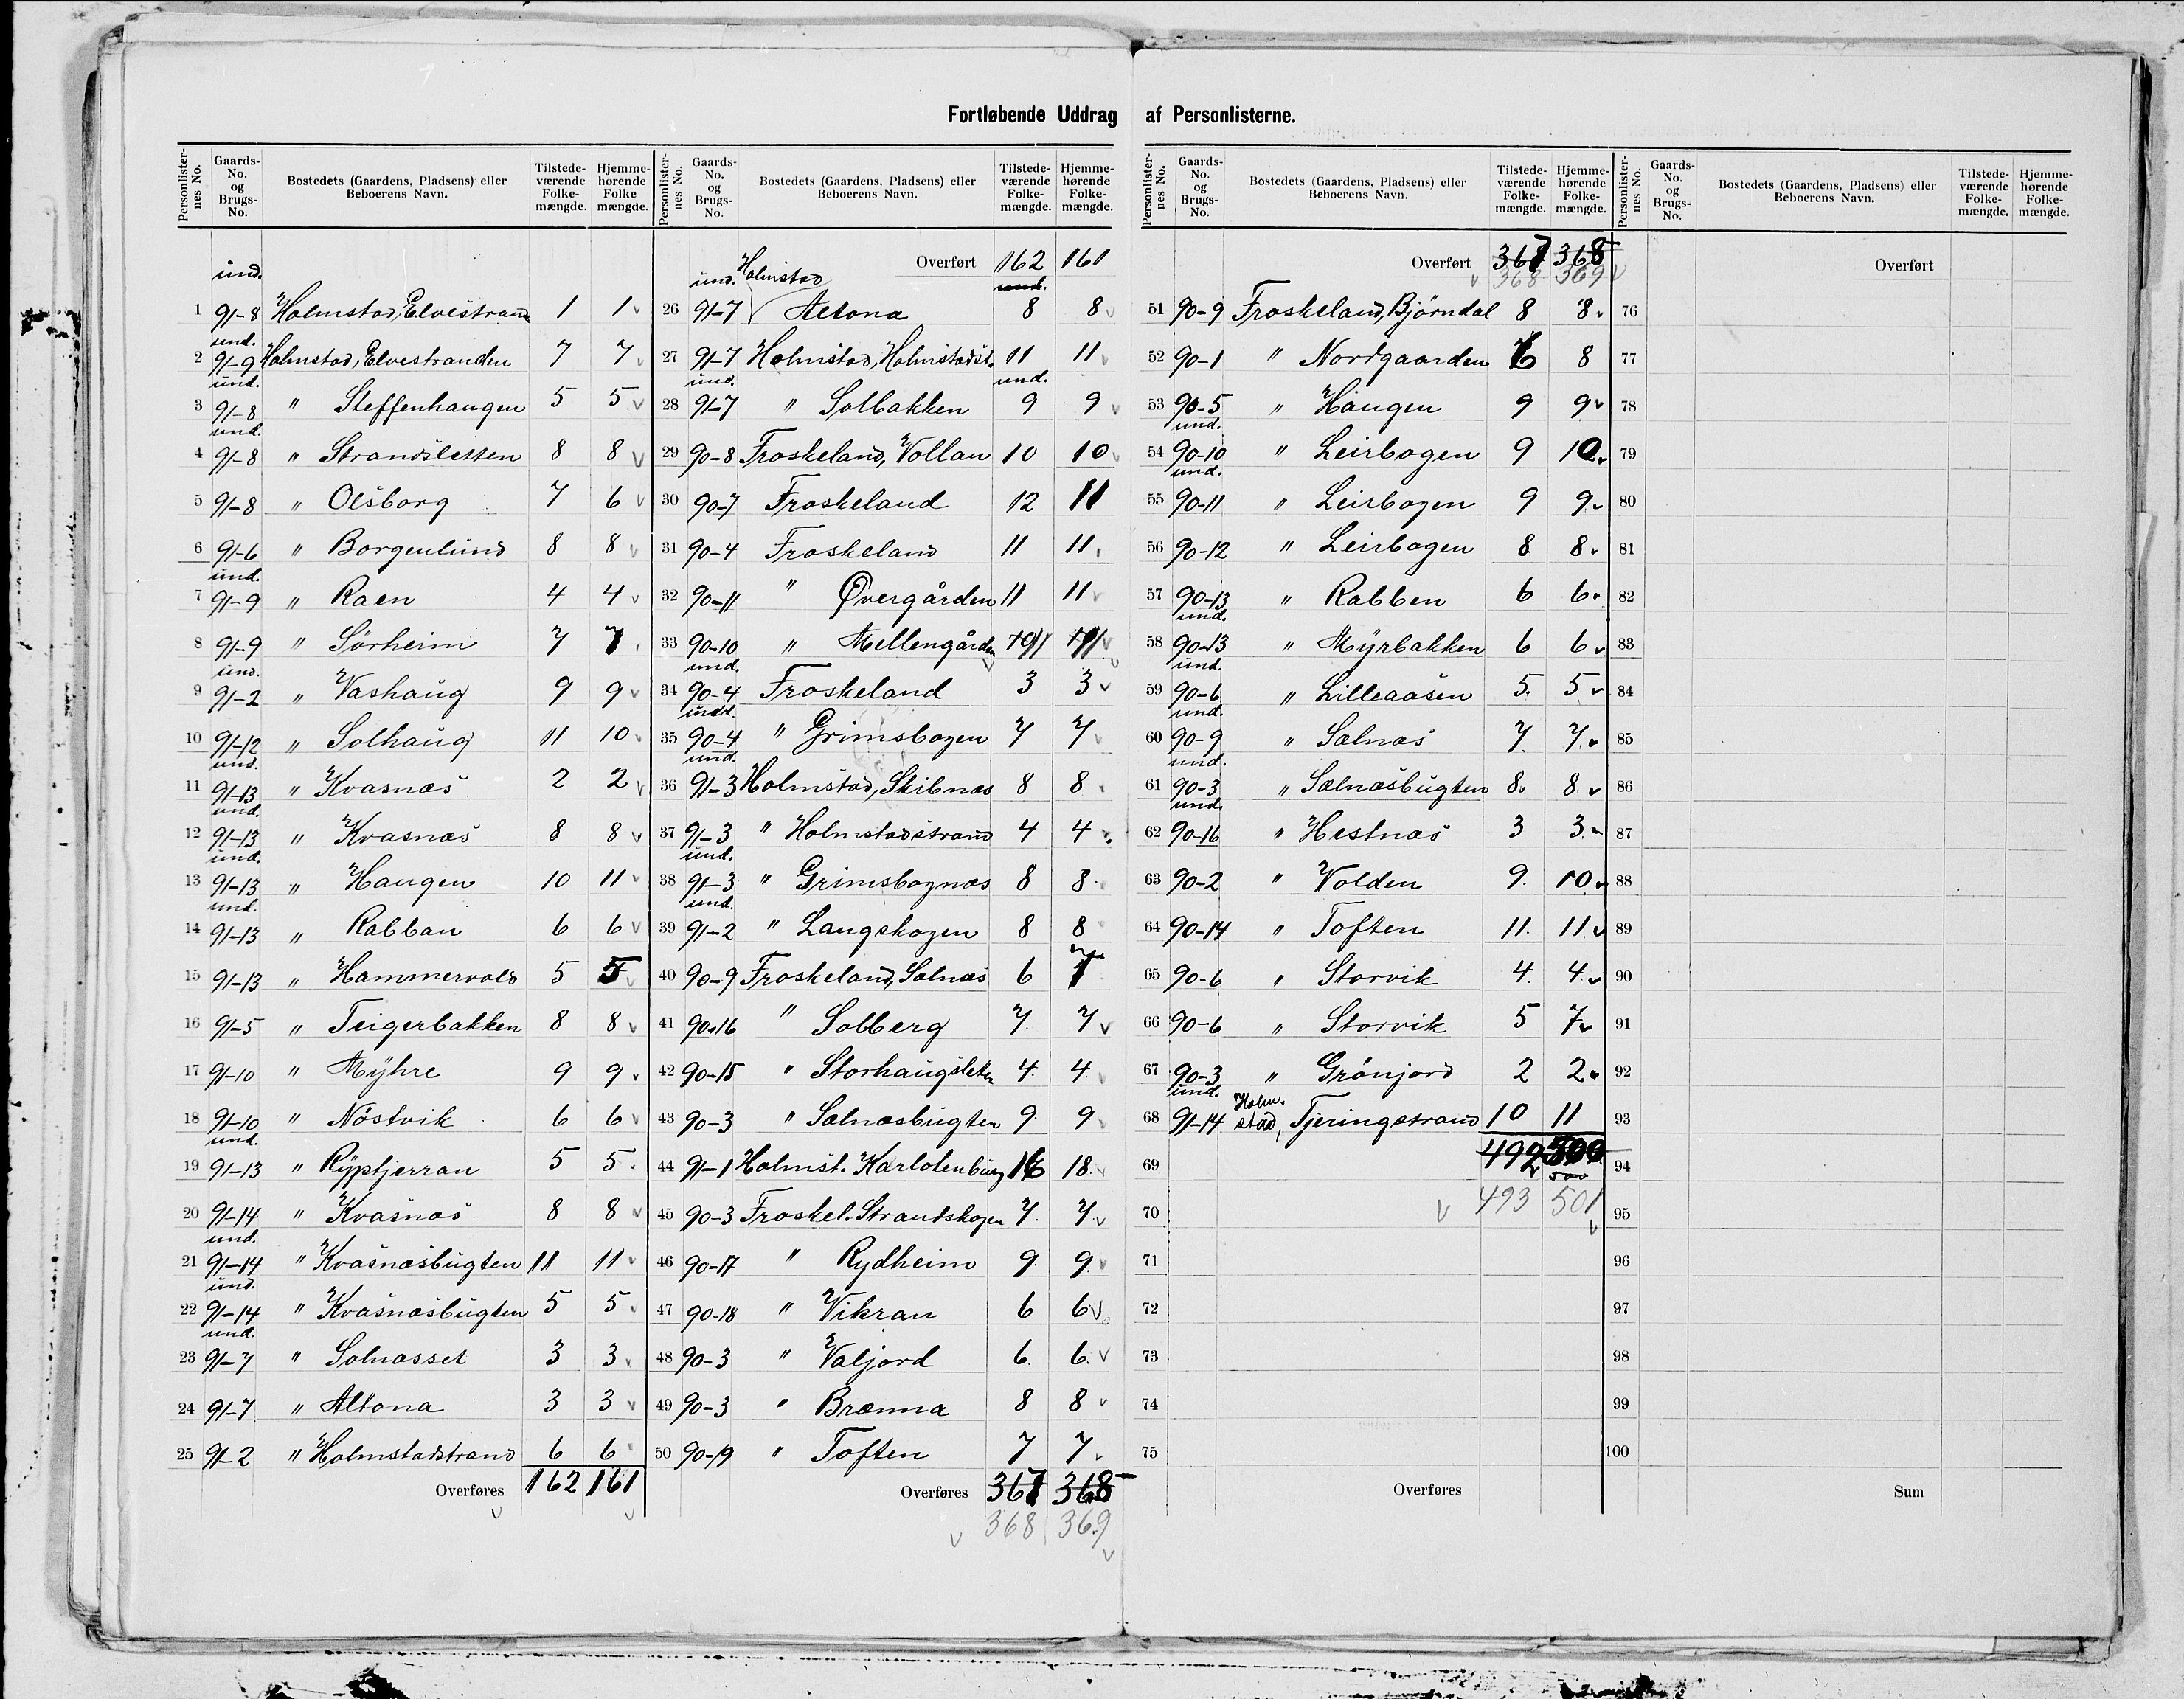 Fortløbende Uddrag af Personlisterne.
Personlisternes No. Gaards-No. og Brugs-No. Bostedets (Gaardens, Pladsens) eller Beboerens Navn. Tilstedeværende Folkemængde. Hjemmehørende Folke mængde.
und.
1 91-8 Holmstad, Elvestrand 1 1
und.
2 91-9 Holmstad, Elvestranden 7 7
und.
3 91-8 " Steffenhaugen 5 5
und.
4 91-8 " Strandsletten 8 8
5 91-8 " Olsborg 7 6
6 91-6 " Borgenlund 8 8
und.
7 91-9 " Raen 4 4
8 91-9 " Sørheim 7 7
und.
9 91-2 " Vashaug 9 9
10 91-12 " Solhaug 11 10
und.
11 91-13 " Kvasnæs 2 2
und.
12 91-13 " Kvasnæs 8 8
und.
13 91-13 " Haugen 10 11
und.
14 91-13 " Rabban 6 6
15 91-13 " Hammervold 5 5
16 91-5 " Teigerbakken 8 8
17 91-10 " Myhre 9 9
18 91-10 " Nøstvik 6 6
und.
19 91-13 " Ryptjerran 5 5
20 91-14 " Kvasnæs 8 8
und.
21 91-14 " Kvasnæsbugten 11 11
und.
22 91-14 " Kvasnæsbugten 5 5
und.
23 91-7 " Solnæsset 3 3
24 91-7 " Altona 3 3
25 91-2 " Holmstadstrand 6 6
Overføres 162 161
Personlisternes No. Gaards-No. og Brugs-No. Bostedets (Gaardens, Pladsens) eller Beboerens Navn. Tilstedeværende Folkemængde. Hjemmehørende Folkemængde.
Overført 162 161
und. Holmstad und.
26 91-7 Altona 8 8
27 91-7 Holmstad, Holmstadst. 11 11
und. und.
28 91-7 " Solbakken 9 9
29 90-8 Froskeland, Vollan 10 10
30 90-7 Froskeland 12 11
31 90-4 Froskeland 11 11
32 90-11 " Øvergården 11 11
33 90-10 " Mellengården 11 11
und.
34 90-4 Froskeland 3 3
und.
35 90-4 " Grimsbogen 7 7
und.
36 91-3 Holmstad, Skibnæs 8 8
37 91-3 " Holmstadstrand 4 4
und.
38 91-3 " Grimsbognæs 8 8
und.
39 91-2 " Langskogen 8 8
40 90-9 Froskeland, Salnæs 6 7
41 90-16 " Solberg 7 7
42 90-15 " Storhaugsleten 4 4
43 90-3 " Salnæsbugten 9 9
44 91-1 Holmst. Karlotenburg 16 18
45 90-3 Froskel. Strandskogen 7 7
46 90-17 " Rydheim 9 9
47 90-18 " Vikran 6 6
48 90-3 " Valjord 6 6
49 90-3 " Brænna 8 8
50 90-19 " Toften 7 7
Overføres 367 368
368 369
Personlisternes No. Gaards-No. og Brugs-No. Bostedets (Gaardens, Pladsens) eller Beboerens Navn. Tilstedeværende Folkemængde. Hjemmehørende Folkemængde.
Overført 367 368
368 369
51 90-9 Froskeland, Bjørndal 8 8
52 90-1 " Nordgaarden 6 8
53 90-5 " Haugen 9 9
und.
54 90-10 " Leirbogen 9 10
und.
55 90-11 " Leirbogen 9 9
56 90-12 " Leirbogen 8 8
57 90-13 " Rabben 6 6
und.
58 90-13 " Myrbakken 6 6
und.
59 90-6 " Lilleaasen 5 5
und.
60 90-9 " Salnæs 7 7
und.
61 90-3 " Salnæsbugten 8 8
und.
62 90-16 " Hestnæs 3 3
63 90-2 " Volden 9 10
64 90-14 " Toften 11 11
65 90-6 " Storvik 4 4
66 90-6 " Storvik 5 7
67 90-3 " Grønjord 2 2
und.
68 91-14 Holmstad, Tjeringstrand 10 11
69 492 500
500
70 493 501
71
72
73
74
75
Overføres
Personlisternes No. Gaards-No. og Brugs-No. Bostedets (Gaardens, Pladsens) eller Beboerens Navn. Tilstedeværende Folkemængde. Hjemmehørende Folkemængde.
Overført
76
77
78
79
80
81
82
83
84
85
86
87
88
89
90
91
92
93
94
95
96
97
98
99
100
Sum